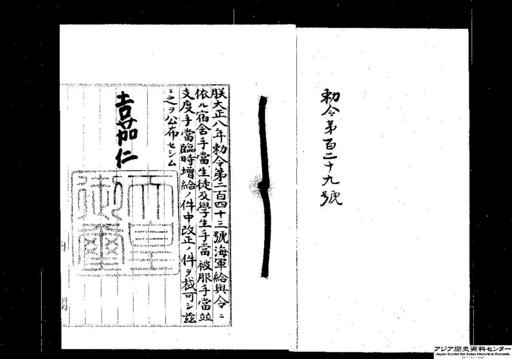 勅令第百二十九號
朕大正八年勅令第二百四十三號海軍給與令ニ
依ル宿舍手當生徒及學生手當被服手當竝
支度手當臨時增給ノ件中改正ノ件ヲ裁可シ茲
ニ之ヲ公布セシム
嘉仁
天皇
御璽
アジア歴史資料センター
Japan Center for Asian Historical Records